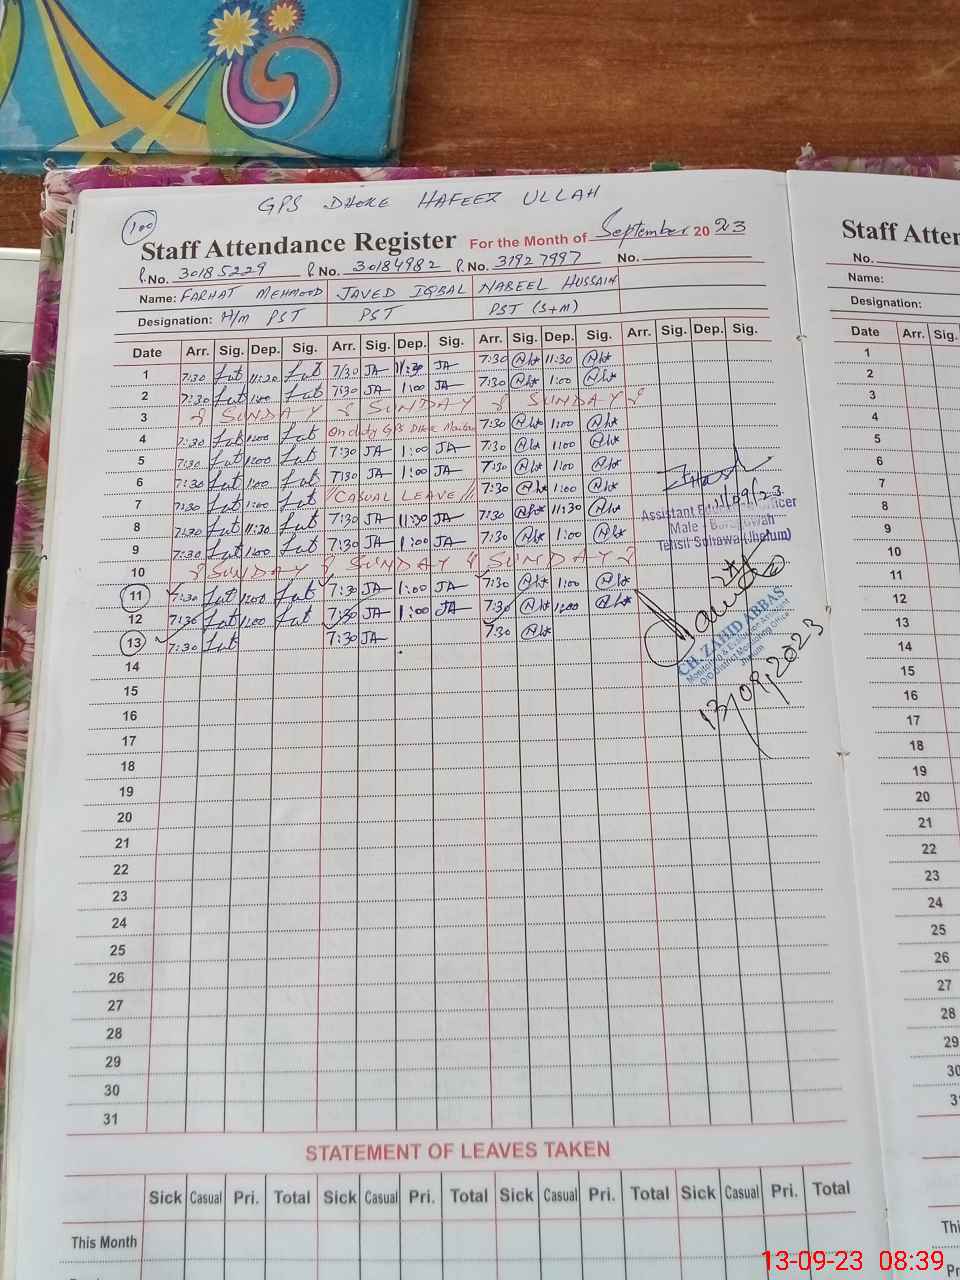 GPS DHOKE HAFEEZ ULLAH
100
Staff Attendance Register For the Month of September 2023
P. No. 30185229 P. No. 30184982 P. No. 31927997 No.
Name: FARHAT MEHMOOD JAVED IQBAL NABEEL HUSSAIN
Designation: H/m PST PST PST (S+M)
Date Arr. Sig. Dep. Sig. Arr. Sig. Dep. Sig. Arr. Sig. Dep. Sig. Arr. Sig. Dep. Sig.
1 7:30 11:30 7:30 JA 11:30 JA 7:30 11:30
2 7:30 1:00 7:30 JA 1:00 JA 7:30 1:00
3 SUNDAY SUNDAY SUNDAY
4 7:30 1:00 On duty GPS Dhoke 7:30 1:00
5 7:30 1:00 7:30 JA 1:00 JA 7:30 1:00
6 7:30 1:00 7:30 JA 1:00 JA 7:30 1:00
7 7:30 1:00 CASUAL LEAVE 7:30 1:00
8 7:30 11:30 7:30 JA 11:30 JA 7:30 11:30
9 7:30 1:00 7:30 JA 1:00 JA 7:30 1:00
10 SUNDAY SUNDAY SUNDAY
11 7:30 1:00 7:30 JA 1:00 JA 7:30 1:00
12 7:30 1:00 7:30 JA 1:00 JA 7:30 1:00
13 7:30 7:30 JA 7:30
14
15
16
17
18
19
20
21
22
23
24
25
26
27
28
29
30
31
Assistant Education Officer
Male
Tehsil Sohawa (Jhelum)
CH. ZAHID ABBAS
Monitoring & Evaluation Assistant
O/O District Monitoring Office
Jhelum
13/09/2023
STATEMENT OF LEAVES TAKEN
Sick Casual Pri. Total Sick Casual Pri. Total Sick Casual Pri. Total Sick Casual Pri. Total
This Month
Staff Atten
No.
Name:
Designation:
Date Arr. Sig.
1
2
3
4
5
6
7
8
9
10
11
12
13
14
15
16
17
18
19
20
21
22
23
24
25
26
27
28
29
30
3
Thi
Pr
13-09-23 08:39